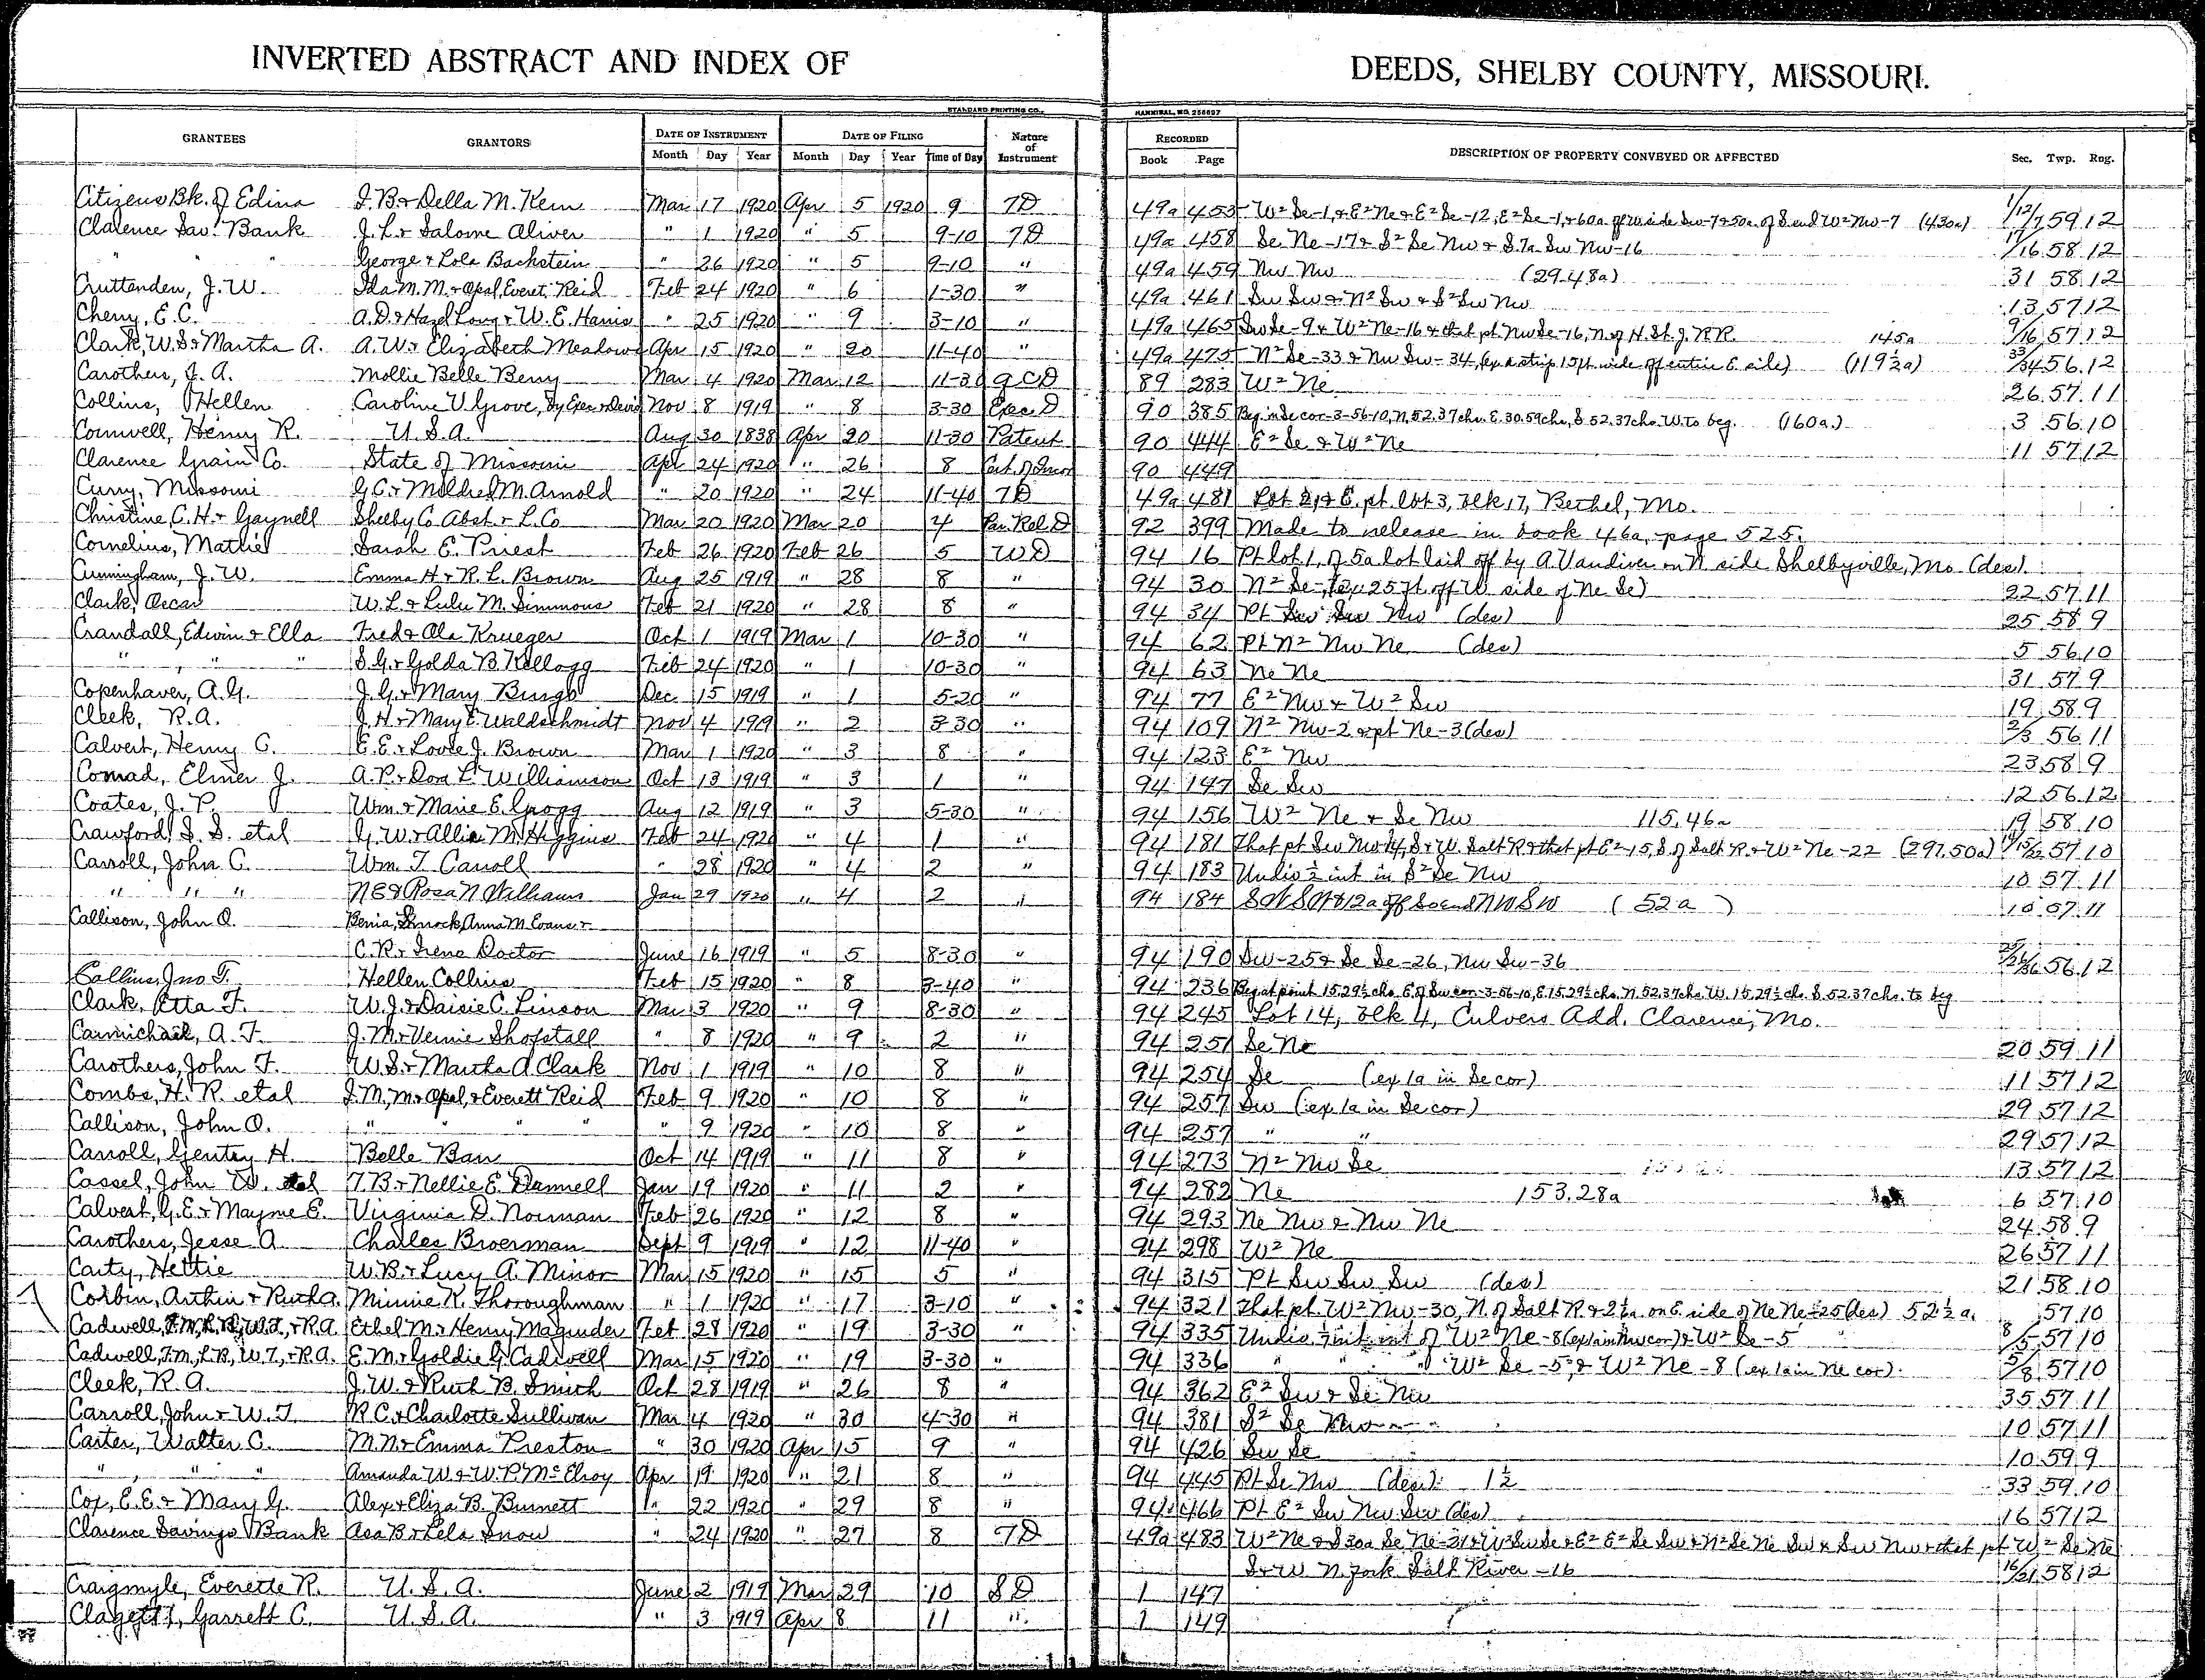 INVERTED ABSTRACT AND INDEX OF DEEDS, SHELBY COUNTY, MISSOURI.
STANDARD PRINTING CO., HANNIBAL, MO. 256697
GRANTEES GRANTORS DATE OF INSTRUMENT DATE OF FILING Nature of Instrument RECORDED DESCRIPTION OF PROPERTY CONVEYED OR AFFECTED Sec. Twp. Rng.
Month Day Year Month Day Year Time of Day Book Page
Citizens Bk. of Edina J. B. & Della M. Kern Mar 17 1920 Apr 5 1920 9 TD 49a 453 W² Se-1, & E² Ne & E² Se-12, E² Se-1, & 60a off W side Sw-7 & 50a. of S end W² Nw-7 (430a) 1/12/7 59 12
Clarence Sav. Bank J. L. & Salome Oliver " 1 1920 " 5 9-10 TD 49a 458 Se Ne-17 & S² Se Nw & S. 7a Sw Nw-16 17/16 58 12
" " George & Lola Bachstein " 26 1920 " 5 9-10 " 49a 459 Nw Nw (29.48a) 31 58 12
Cruttenden, J. W. Ida M. M. & Opal, Everet Reid Feb 24 1920 " 6 1-30 " 49a 461 Sw Sw & N² Sw & S² Sw Nw 13 57 12
Cherry, E. C. A. D. & Hazel Long & W. E. Harris " 25 1920 " 9 3-10 " 49a 465 Sw Se-9 & W² Ne-16 & that pt Nw Se-16, N. of H. St. J. RR. 145a 9/16 57 12
Clark, W. S. & Martha A. A. W. & Elizabeth Meadows Apr 15 1920 " 20 11-40 " 49a 475 N² Se-33 & Nw Sw-34, (ex a strip 15 ft. wide off entire E side) (119½a) 33/34 56 12
Carothers, J. A. Mollie Belle Berry Mar 4 1920 Mar 12 11-30 QCD 89 283 W² Ne 26 57 11
Collins, Hellen Caroline V. Grove, by Exec & Devis Nov 8 1919 " 8 3-30 Exec D 90 385 Beg in Se cor-3-56-10, N. 52.37 chs. E. 30.59 chs, S 52.37 chs. W. to beg. (160a.) 3 56 10
Cornwell, Henry R. U. S. A. Aug 30 1838 Apr 20 11-30 Patent 90 444 E² Se & W² Ne 11 57 12
Clarence Grain Co. State of Missouri Apr 24 1920 " 26 8 Cert. of Incor 90 449
Curry, Missouri G. C. & Mildred M. Arnold " 20 1920 " 24 11-40 TD 49a 481 Lot 2, & E. pt. lot 3, blk 17, Bethel, Mo.
Christine, C. H. & Gaynell Shelby Co Abst & L. Co Mar 20 1920 Mar 20 4 Par. Rel. D 92 399 Made to release in book 46a, page 525.
Cornelius, Mattie Sarah E. Priest Feb 26 1920 Feb 26 5 WD 94 16 Pt lot 1, of 5a lot laid off by A Vandiver on N side Shelbyville, Mo (des)
Cunningham, J. W. Emma H & R. L. Brown Aug 25 1919 " 28 8 " 94 30 N² Se-(ex 25 ft. off W side of Ne Se) 22 57 11
Clark, Oscar W. L. & Lulu M. Simmons Feb 21 1920 " 28 8 " 94 34 Pt Sw Sw Nw (des) 25 58 9
Crandall, Edwin & Ella Fred & Ola Krueger Oct 1 1919 Mar 1 10-30 " 94 62 Pt N² Nw Ne (des) 5 56 10
" " " S. G. & Golda B. Kellogg Feb 24 1920 " 1 10-30 " 94 63 Ne Ne 31 57 9
Copenhaver, A. G. J. G. & Mary Bungo Dec 15 1919 " 1 5-20 " 94 77 E² Nw & W² Sw 19 58 9
Cleek, R. A. J. H. & Mary E. Waldschmidt Nov 4 1919 " 2 3-30 " 94 109 N² Nw-2 & pt Ne-3 (des) 2/3 56 11
Calvert, Henry C. E. E. & Lovie J. Brown Mar 1 1920 " 3 8 " 94 123 E² Nw 23 58 9
Conrad, Elmer J. A. P. & Dora L. Williamson Oct 13 1919 " 3 1 " 94 147 Se Sw 12 56 12
Coates, J. P. Wm. & Marie E. Grogg Aug 12 1919 " 3 5-30 " 94 156 W² Ne & Se Nw 115.46a 19 58 10
Crawford, S. S. etal G. W. & Allie M. Higgins Feb 24 1920 " 4 1 " 94 181 That pt Sw Nw 14, S & W. Salt R & that pt E²-15, S. of Salt R. & W² Ne-22 (297.50a) 14/15/22 57 10
Carroll, John C. Wm. T. Carroll " 28 1920 " 4 2 " 94 183 Undiv ½ int in S² Se Nw 10 57 11
" " " N E & Rosa N Williams Jan 29 1920 " 4 2 " 94 184 SW SW & 12a off So end NW SW (52a) 10 57 11
Callison, John O. Benia, Shrock, Anna M. Evans &
C. R. & Irene Doctor June 16 1919 " 5 8-30 " 94 190 Sw-25 & Se Se-26, Nw Sw-36 25/26/36 56 12
Collins, Jno T. Hellen Collins Feb 15 1920 " 8 3-40 " 94 236 Beg at point 15.29½ chs. E. of Sw cor-3-56-10, E. 15.29½ chs. N. 52.37 chs. W. 15.29½ ch. S. 52.37 chs. to beg
Clark, Etta F. W. J. & Daisie C. Linson Mar 3 1920 " 9 8-30 " 94 245 Lot 14, blk 4, Culvers Add. Clarence, Mo.
Carmichael, A. F. J. M. & Vernie Shofstall " 8 1920 " 9 2 " 94 251 Se Ne 20 59 11
Carothers, John F. W. S. & Martha A Clark Nov 1 1919 " 10 8 " 94 254 Se (ex 1a in Se cor) 11 57 12
Combs, H. R. etal I. M, M & Opal, & Everett Reid Feb 9 1920 " 10 8 " 94 257 Sw (ex 1a in Se cor) 29 57 12
Callison, John O. " " " " " 9 1920 " 10 8 " 94 257 " " 29 57 12
Carroll, Gentry H. Belle Barr Oct 14 1919 " 11 8 " 94 273 N² Nw Se 13 57 12
Cassel, John W. etal T. B. & Nellie E. Dannell Jan 19 1920 " 11 2 " 94 282 Ne 153.28a 6 57 10
Calvert, G. E. & Mayme E. Virginia D. Norman Feb 26 1920 " 12 8 " 94 293 Ne Nw & Nw Ne 24 58 9
Carothers, Jesse A. Charles Broerman Sept 9 1919 " 12 11-40 " 94 298 W² Ne 26 57 11
Carty, Nettie W. B. & Lucy A. Minor Mar 15 1920 " 15 5 " 94 315 Pt Sw Sw Sw (des) 21 58 10
Corbin, Arthur & Ruth A. Minnie K. Thoroughman " 1 1920 " 17 3-10 " 94 321 That pt W² Nw-30, N. of Salt R. & 2½a. on E. side of Ne Ne-25 (des) 52½a. 57 10
Cadwell, F. M., L. R., W. T., & R. A. Ethel M. & Henry Magruder Feb 28 1920 " 19 3-30 " 94 335 Undiv. int of W² Ne-8 (ex 1a in Nw cor) & W² Se-5 8/5 57 10
Cadwell, F. M., L. R., W. T., & R. A. E. M. & Goldie G. Cadwell Mar 15 1920 " 19 3-30 " 94 336 " " " W² Se-5, & W² Ne-8 (ex 1a in Ne cor). 5/8 57 10
Cleek, R. A. J. W. & Ruth B. Smith Oct 28 1919 " 26 8 " 94 362 E² Sw & Se Nw 35 57 11
Carroll, John & W. T. R. C. & Charlotte Sullivan Mar 4 1920 " 30 4-30 " 94 381 S² Se Nw 10 57 11
Carter, Walter C. M. N. & Emma Preston " 30 1920 Apr 15 9 " 94 426 Sw Se 10 59 9
" " " Amanda W. & W. P. McElroy Apr 19 1920 " 21 8 " 94 445 Pt Se Nw (des) 1½ 33 59 10
Cox, E. E. & Mary G. Alex & Eliza B. Burnett " 22 1920 " 29 8 " 94 466 Pt E² Sw Nw Sw (des) 16 57 12
Clarence Savings Bank Asa B. & Lela Snow " 24 1920 " 27 8 TD 49a 483 W² Ne & S 30a Se Ne-21 & W² Sw Se & E² E² Se Sw & N² Se Ne Sw & Sw Nw & that pt W² Se Ne
S & W N. fork Salt River-16 16/21 58 12
Craigmyle, Everette R. U. S. A. June 2 1919 Mar 29 10 SD 1 147
Clagett, Garrett C. U. S. A. " 3 1919 Apr 8 11 " 1 149